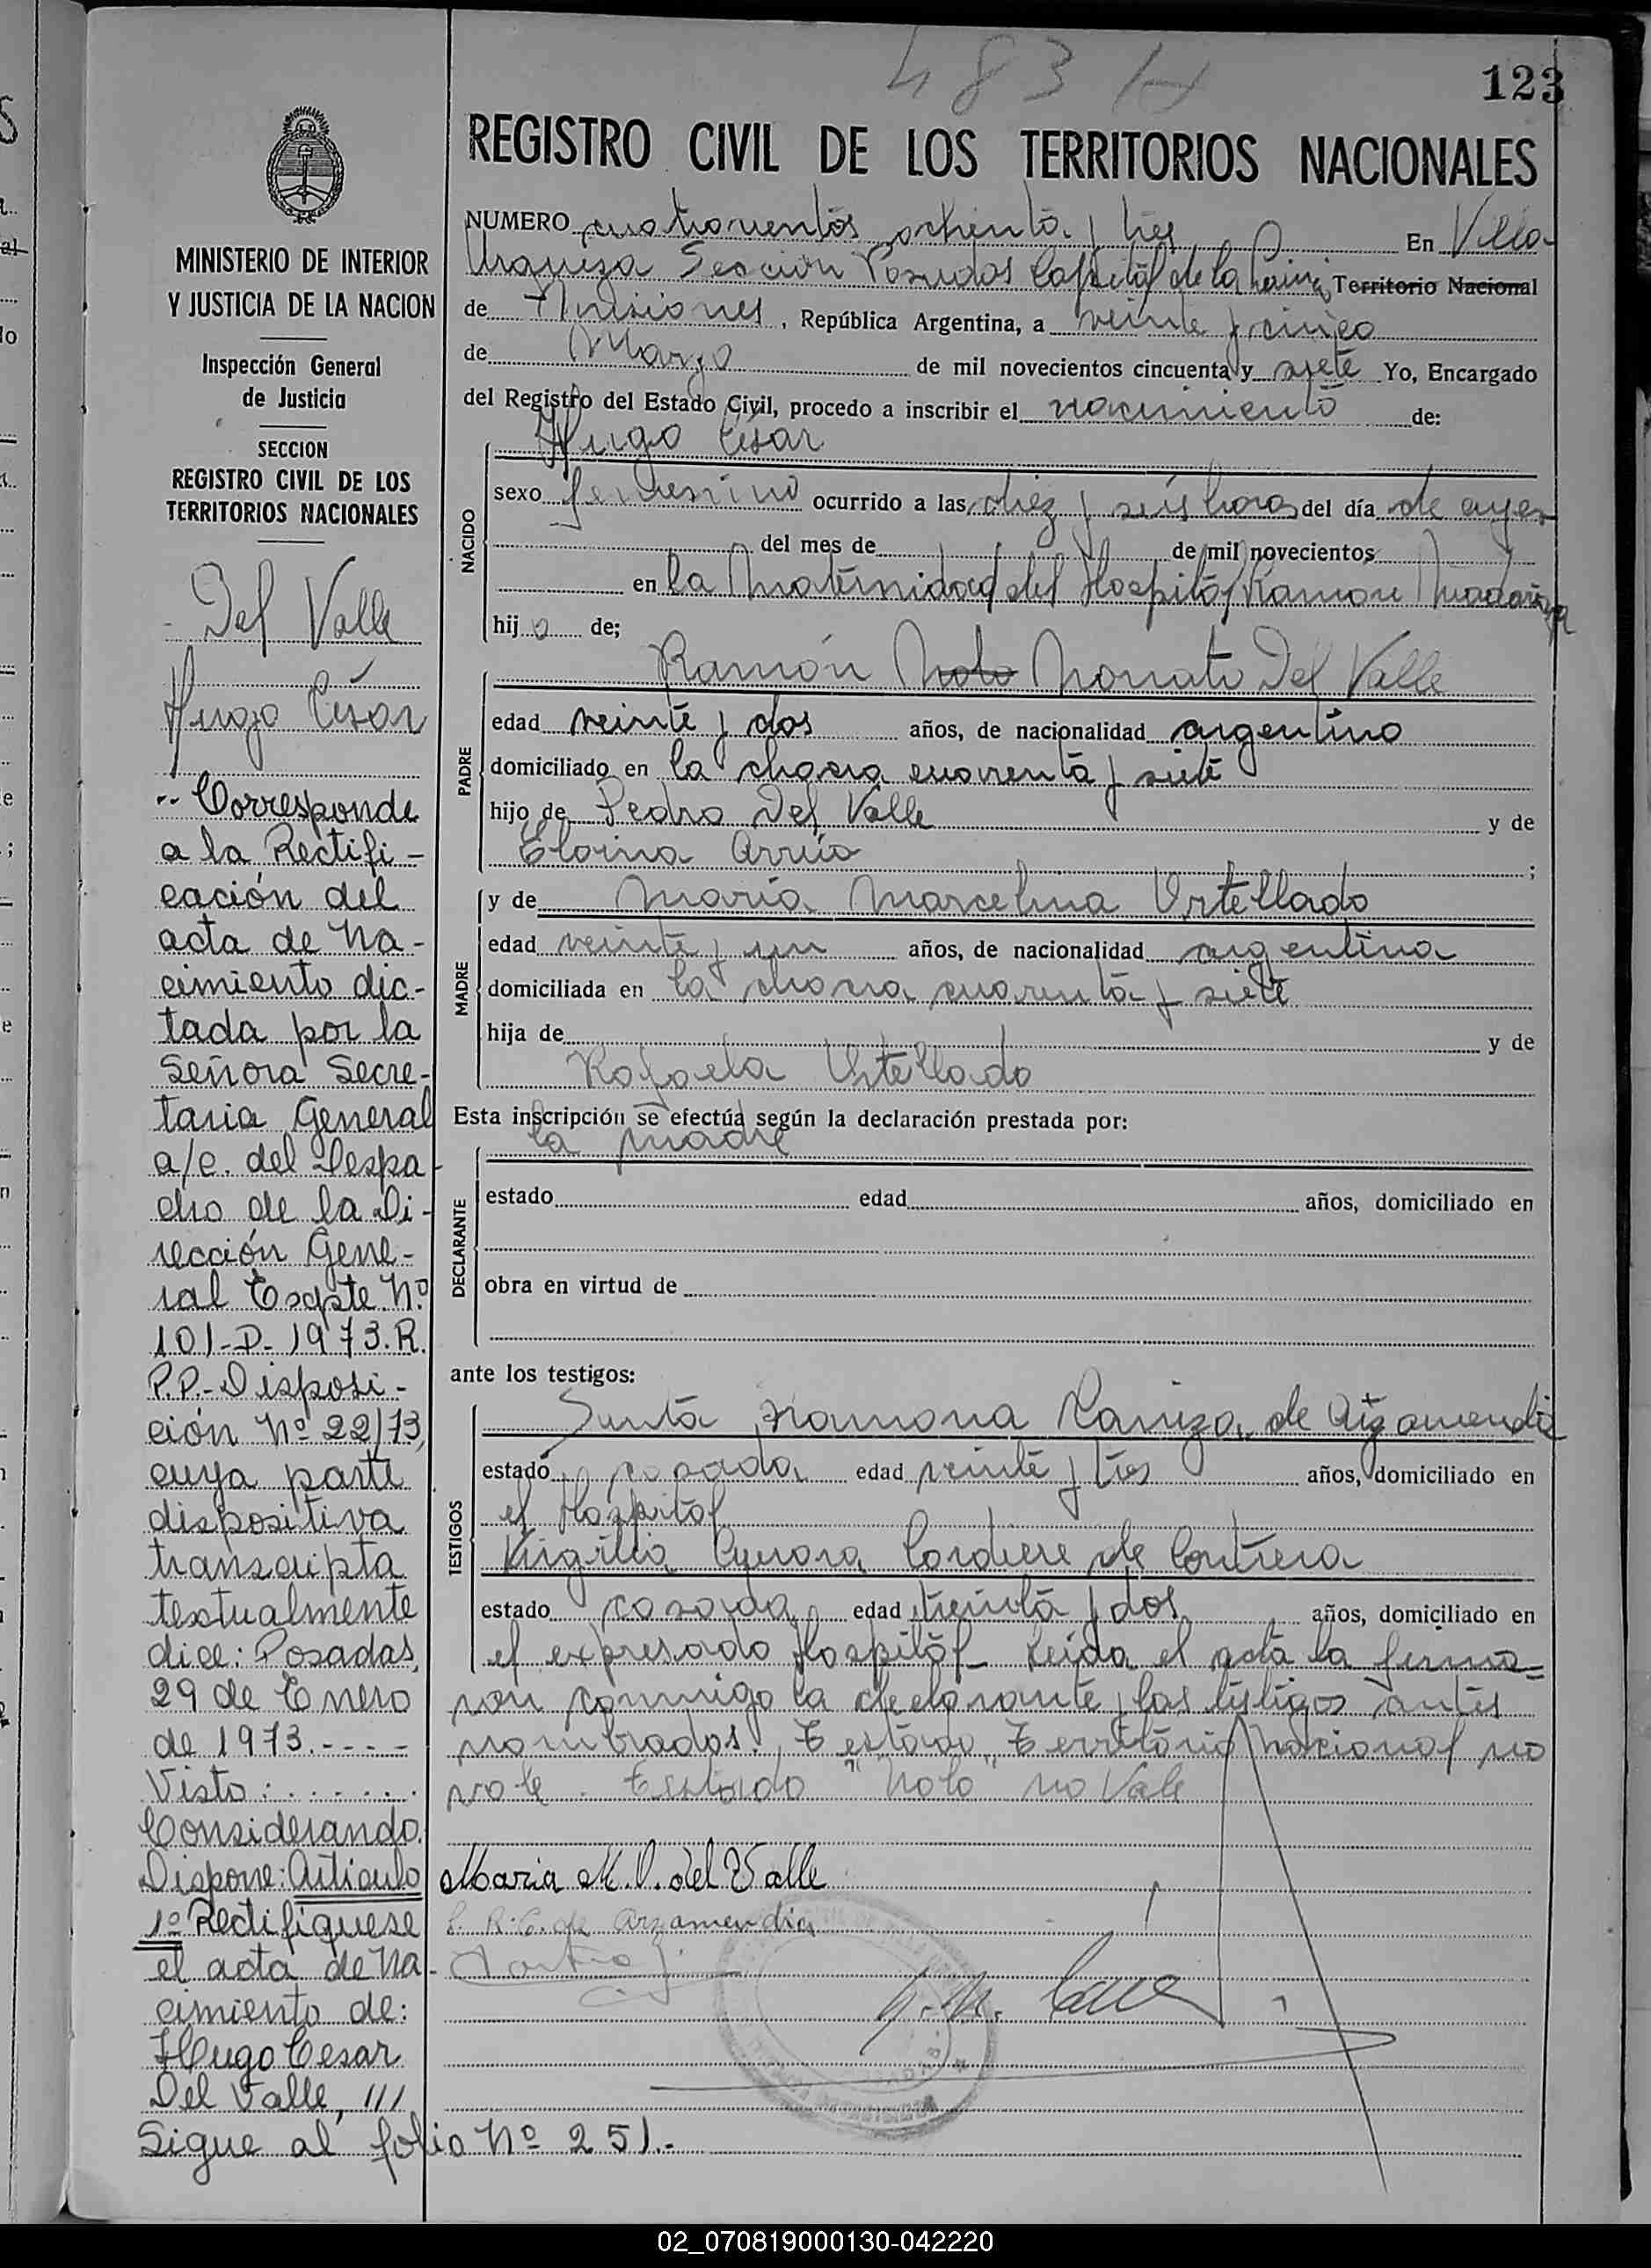 483 H
123
REGISTRO CIVIL DE LOS TERRITORIOS NACIONALES
MINISTERIO DE INTERIOR
Y JUSTICIA DE LA NACION
Inspección General
de Justicia
SECCION
REGISTRO CIVIL DE LOS
TERRITORIOS NACIONALES
Del Valle
Hugo César
-- Corresponde
a la Rectifi-
cación del
acta de Na-
cimiento dic-
tada por la
Señora Secre-
taria General
a/c. del Despa-
cho de la Di-
rección Gene-
ral Expte. Nº
101-D-1973.R.
P.P.- Disposi-
ción Nº 22/73,
cuya parte
dispositiva
transcripta
textualmente
dice: Posadas,
29 de Enero
de 1973.----
Visto: . . . . . .
Considerando.
Dispone: Artículo
1º Rectifíquese
el acta de Na-
cimiento de:
Hugo Cesar
Del Valle, ///
Sigue al folio Nº 251.-
NUMERO cuatrocientos ochenta y tres En Villa
Urquiza Sección Posadas Capital de la Territorio Nacional
de Misiones, República Argentina, a veinte y cinco
de Marzo de mil novecientos cincuenta y siete Yo, Encargado
del Registro del Estado Civil, procedo a inscribir el nacimiento de:
Hugo César
NACIDO
sexo femenino ocurrido a las diez y seis horas del día de ayer
del mes de de mil novecientos
en la Maternidad del Hospital Ramón Madariaga
hijo de;
Ramón Nolo Nonato Del Valle
PADRE
edad veinte y dos años, de nacionalidad argentino
domiciliado en la chacra cuarenta y siete
hijo de Pedro Del Valle y de
;
y de María Marcelina Ortellado
MADRE
edad veinte y un años, de nacionalidad argentina
domiciliada en la chacra cuarenta y siete
hija de y de
Rafaela Ortellado
Esta inscripción se efectúa según la declaración prestada por:
la madre
DECLARANTE
estado edad años, domiciliado en
obra en virtud de
ante los testigos:
TESTIGOS
Ramona de Arzamendia
estado casada edad veinte y tres años, domiciliado en
el Hospital
de Contrera
estado casada edad treinta y dos años, domiciliado en
el expresado Hospital- Leída el acta la firma=
ron conmigo la declarante y los testigos antes
nombrados. Testado "Territorio Nacional no
vale. Testado "Nolo" no Vale
Maria M. O. del Valle
S. R. C. de Arzamendia
02_070819000130-042220